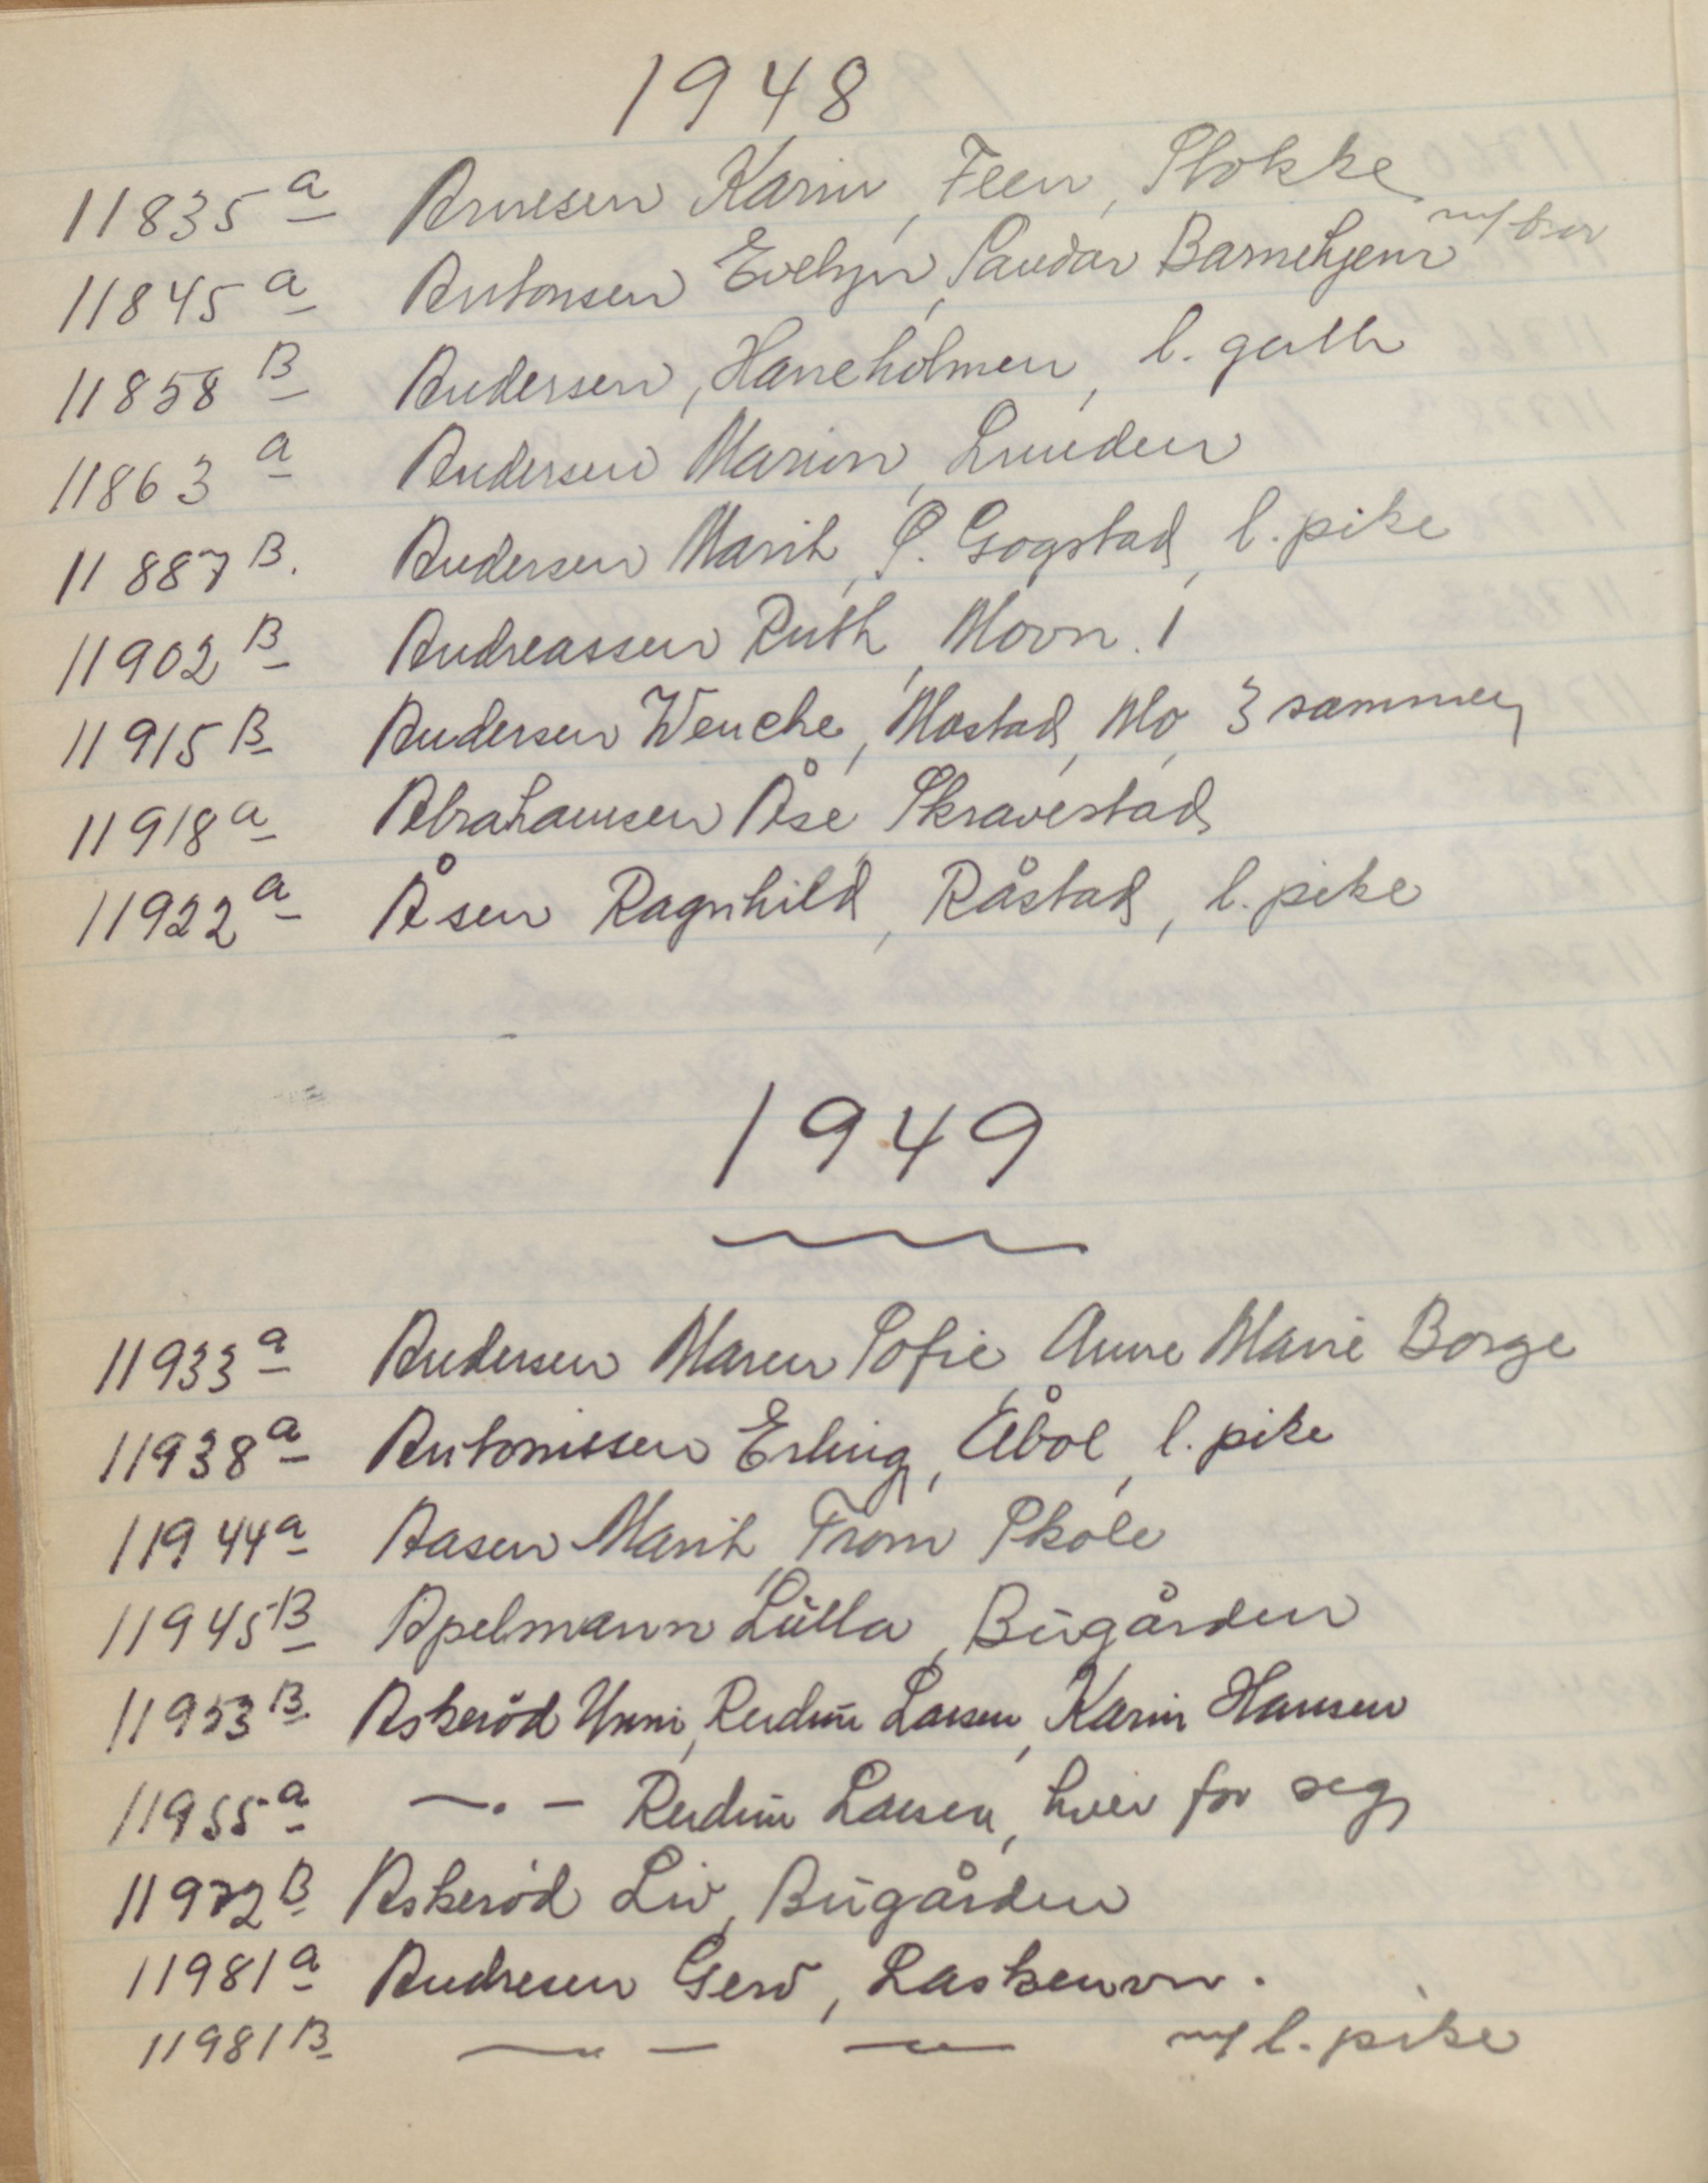 1948
11835 a Arnesen Karin, Feen, Stokke
11845 a Antonsen Evelyn, Sandar Barnehjem m/
11858 B Andersen, Haneholmen, l. gutt
11863 a Andersen Marion, Lunden
11887 B. Andersen Marit, Ø. Gogstad, l. pike
11902 B Andreassen Ruth, Movn. 1
11915 B Andersen Wenche, Mostad, Mo, 3 sammen
11918 a Abrahamsen Åse, Skravestad
11922 a Åsen Ragnhild, Råstad, l. pike
1949
11933 a Andersen Maren Sofie, Anne Marie Borge
11938 a Antonissen Erling, Åbol, l. pike
11944 a Aasen Marit, From Skole
11945 B Apelmann Lūlla, Būgården
11953 B. Askeröd Unni, Reidun Larsen, Karin Hansen
11955 a —.— Reidun Larsen, hver for seg
11972 B Askeröd Liv, Būgården
11981 a Andresen Gerd, Laskenvn.
11981 B — — — m/ l. pike